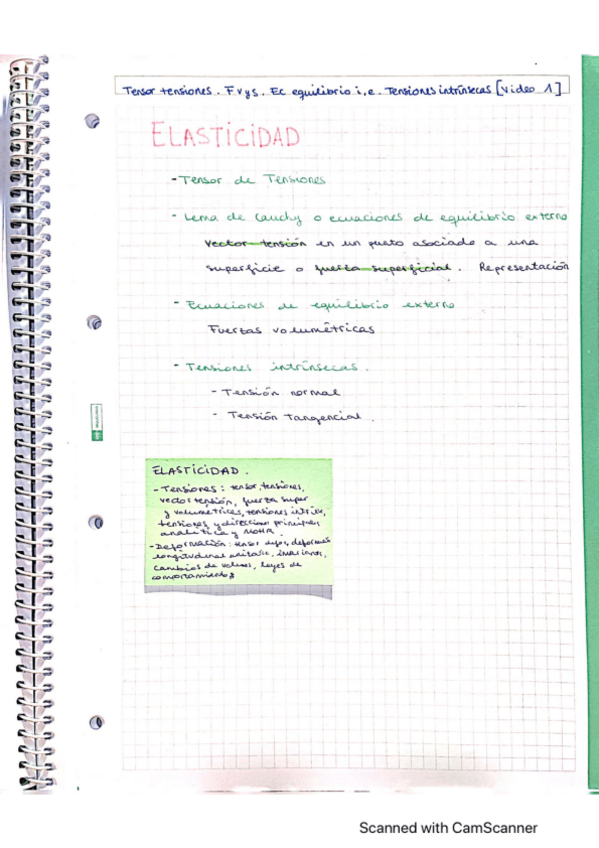 Tensor tensiones. F v y s. Ec equilibrio i,e. Tensiones intrínsecas [Video 1]
ELASTICIDAD
- Tensor de Tensiones
- Lema de Cauchy o ecuaciones de equilibrio externo
Vector tensión en un punto asociado a una
superficie o fuerza superficial. Representación
- Ecuaciones de equilibrio externo
Fuerzas volumétricas
- Tensiones intrínsecas.
- Tensión normal
- Tensión tangencial.
ELASTICIDAD.
- Tensiones: tensor, tensiones,
vector tensión, fuerza super
y volumetrices, tensiones intrins,
tensiones y direccion principales
analitica y MOHR.
- Deformación: tensor defor, deformac
longitudinal unitaria,
cambios de volumen, leyes de
comportamiento
Scanned with CamScanner